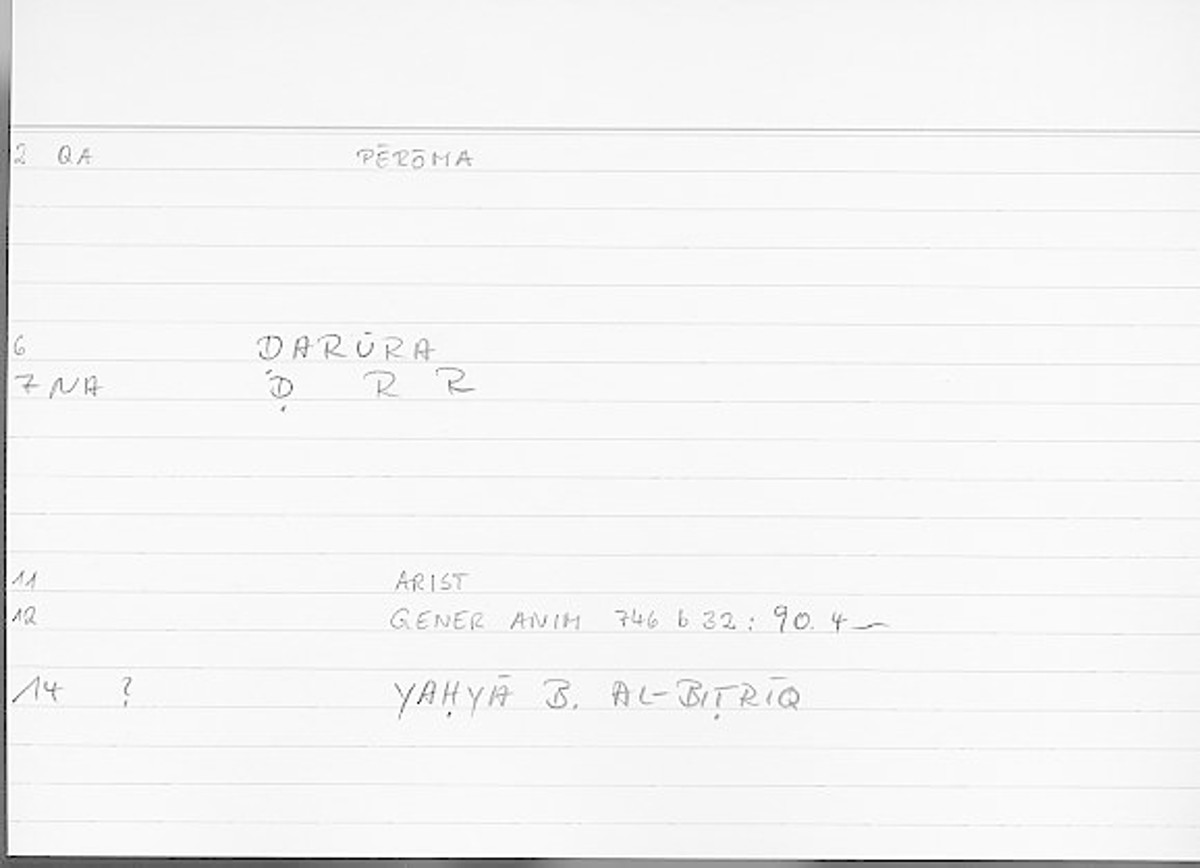 2 QA PĒRŌMA
6 ḌARŪRA
7 NA Ḍ R R
11 ARIST
12 GENER ANIM 746 b 32 : 90. 4
14 ? YAḤYĀ B. AL-BIṬRĪQ